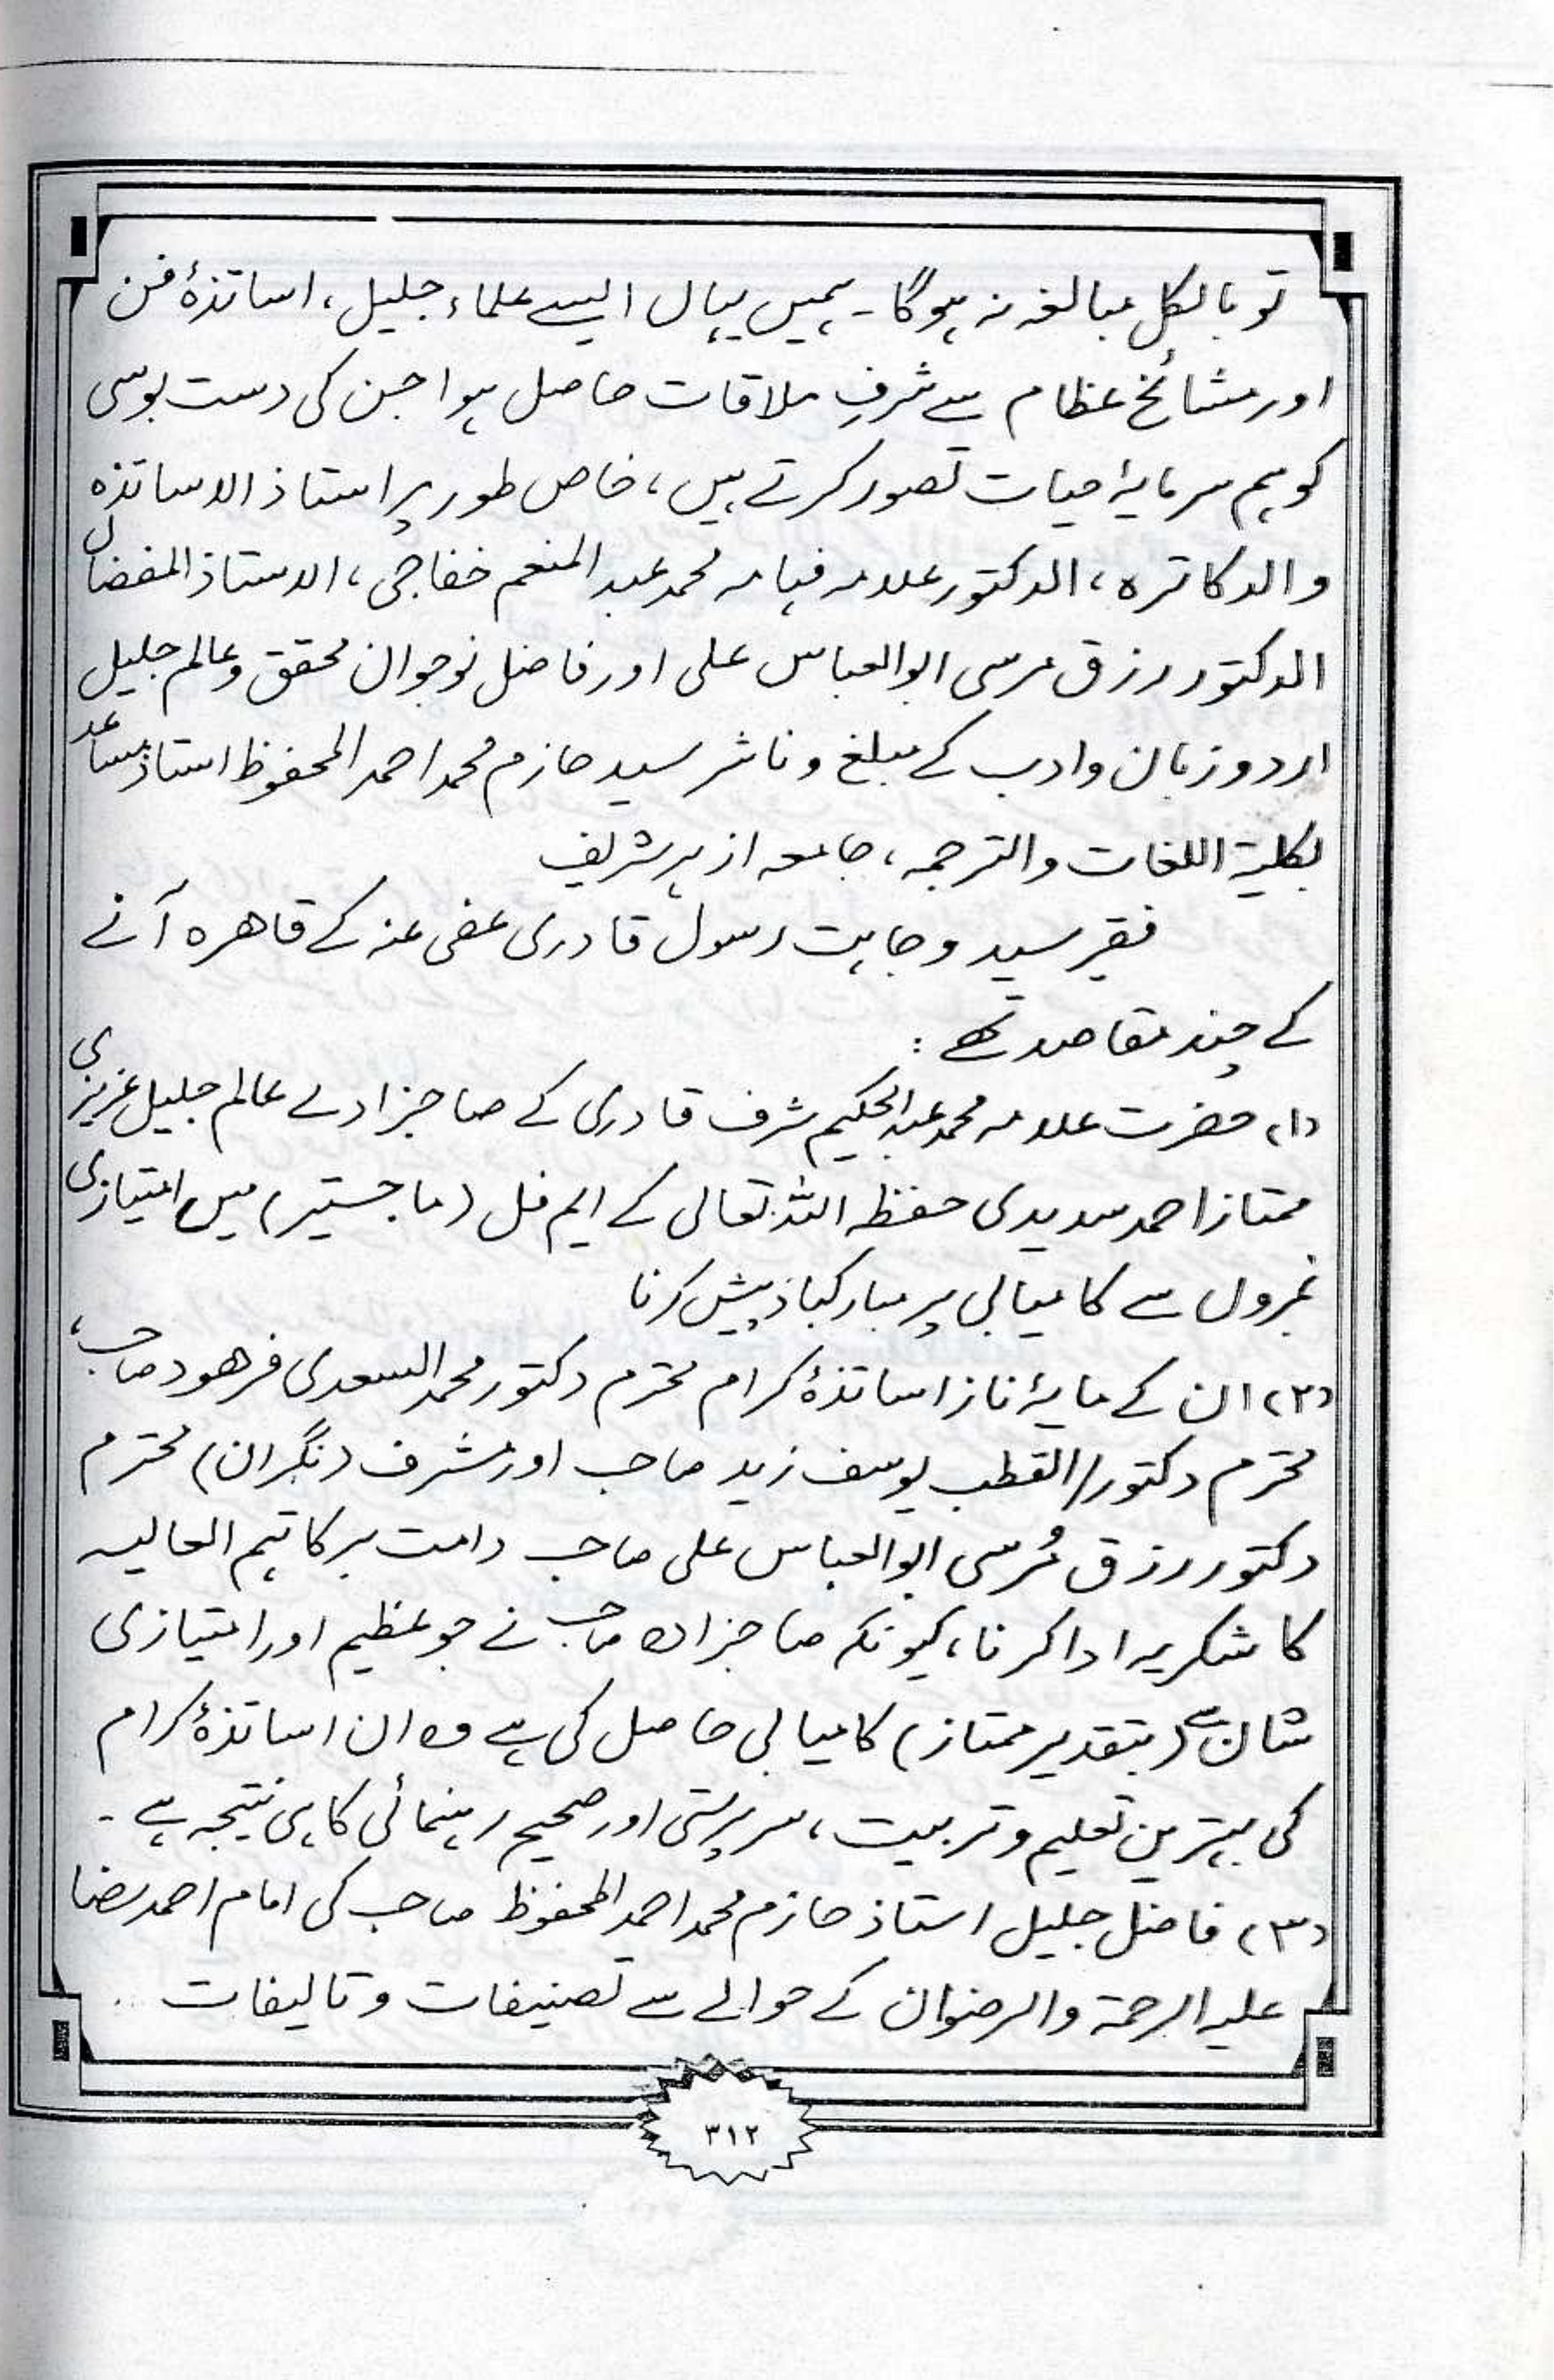 تو بالکل مبالغہ نہ ہوگا۔ ہمیں یہاں ایسے علماء جلیل، اساتذۂ فن
اور مشائخ عظام سے شرفِ ملاقات حاصل ہوا جن کی دست بوسی
کو ہم سرمایۂ حیات تصور کرتے ہیں، خاص طور پر استاذ الاساتذہ
والدکاترہ، الدکتور علامہ فہامہ محمد عبد المنعم خفاجی، الاستاذ المفضال
الدکتور رزق مرسی ابوالعباس علی اور فاضل نوجوان محقق و عالم جلیل
اردو زبان و ادب کے مبلغ و ناشر سید حازم محمد احمد المحفوظ استاذ مساعد
بکلیۃ اللغات والترجمہ، جامعہ ازہر شریف
فقیر سید وجاہت رسول قادری عفی عنہ کے قاھرہ آنے
کے چند مقاصد تھے :
(۱) حضرت علامہ محمد عبدالحکیم شرف قادری کے صاحبزادے عالم جلیل عزیزی
ممتاز احمد سدیدی حفظہ اللہ تعالی کے ایم فل (ماجستیر) میں امتیازی
نمبروں سے کامیابی پر مبارکباد پیش کرنا
(۲) ان کے مایۂ ناز اساتذۂ کرام محترم دکتور محمد السعدی فرھود صاحب،
محترم دکتور/القطب یوسف زید صاحب اور مشرف (نگران) محترم
دکتور رزق مُرسی ابوالعباس علی صاحب دامت برکاتہم العالیہ
کا شکریہ ادا کرنا، کیونکہ صاحبزادہ صاحب نے جو عظیم اور امتیازی
شان سے (بتقدیر ممتاز) کامیابی حاصل کی ہے وہ ان اساتذۂ کرام
کی بہترین تعلیم و تربیت، سرپرستی اور صحیح رہنمائی کا ہی نتیجہ ہے ۔
(۳) فاضل جلیل استاذ حازم محمد احمد المحفوظ صاحب کی امام احمد رضا
علیہ الرحمۃ والرضوان کے حوالے سے تصنیفات و تالیفات ..
۳۱۲